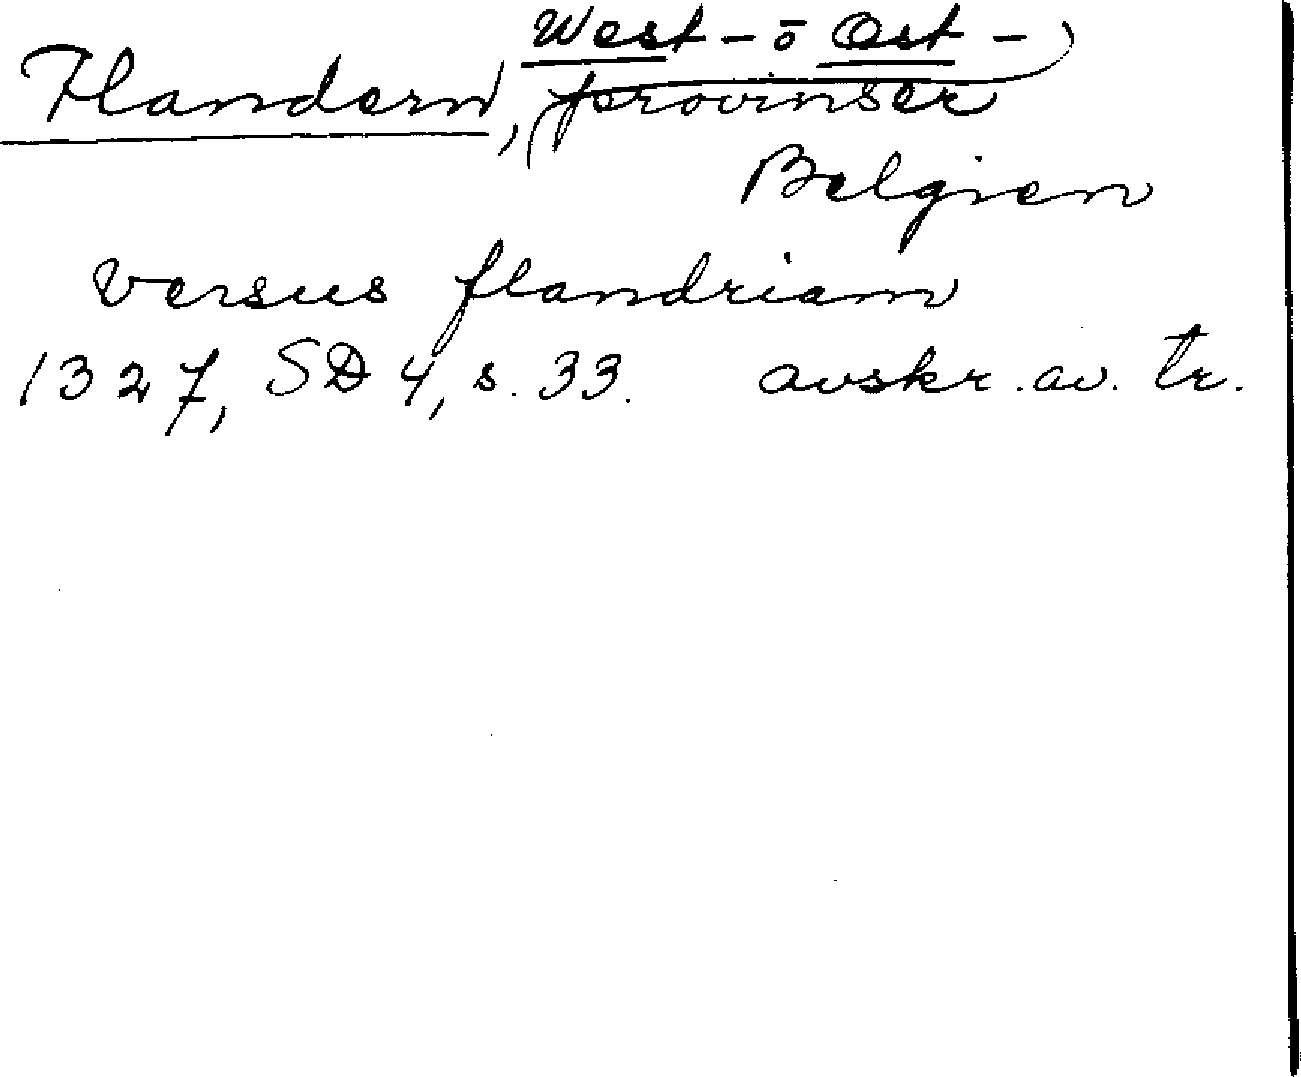 West- o Ost-
Flandern, provinser
Belgien
versus flandriam
1327, SD 4, s. 33. avskr. av. tr.